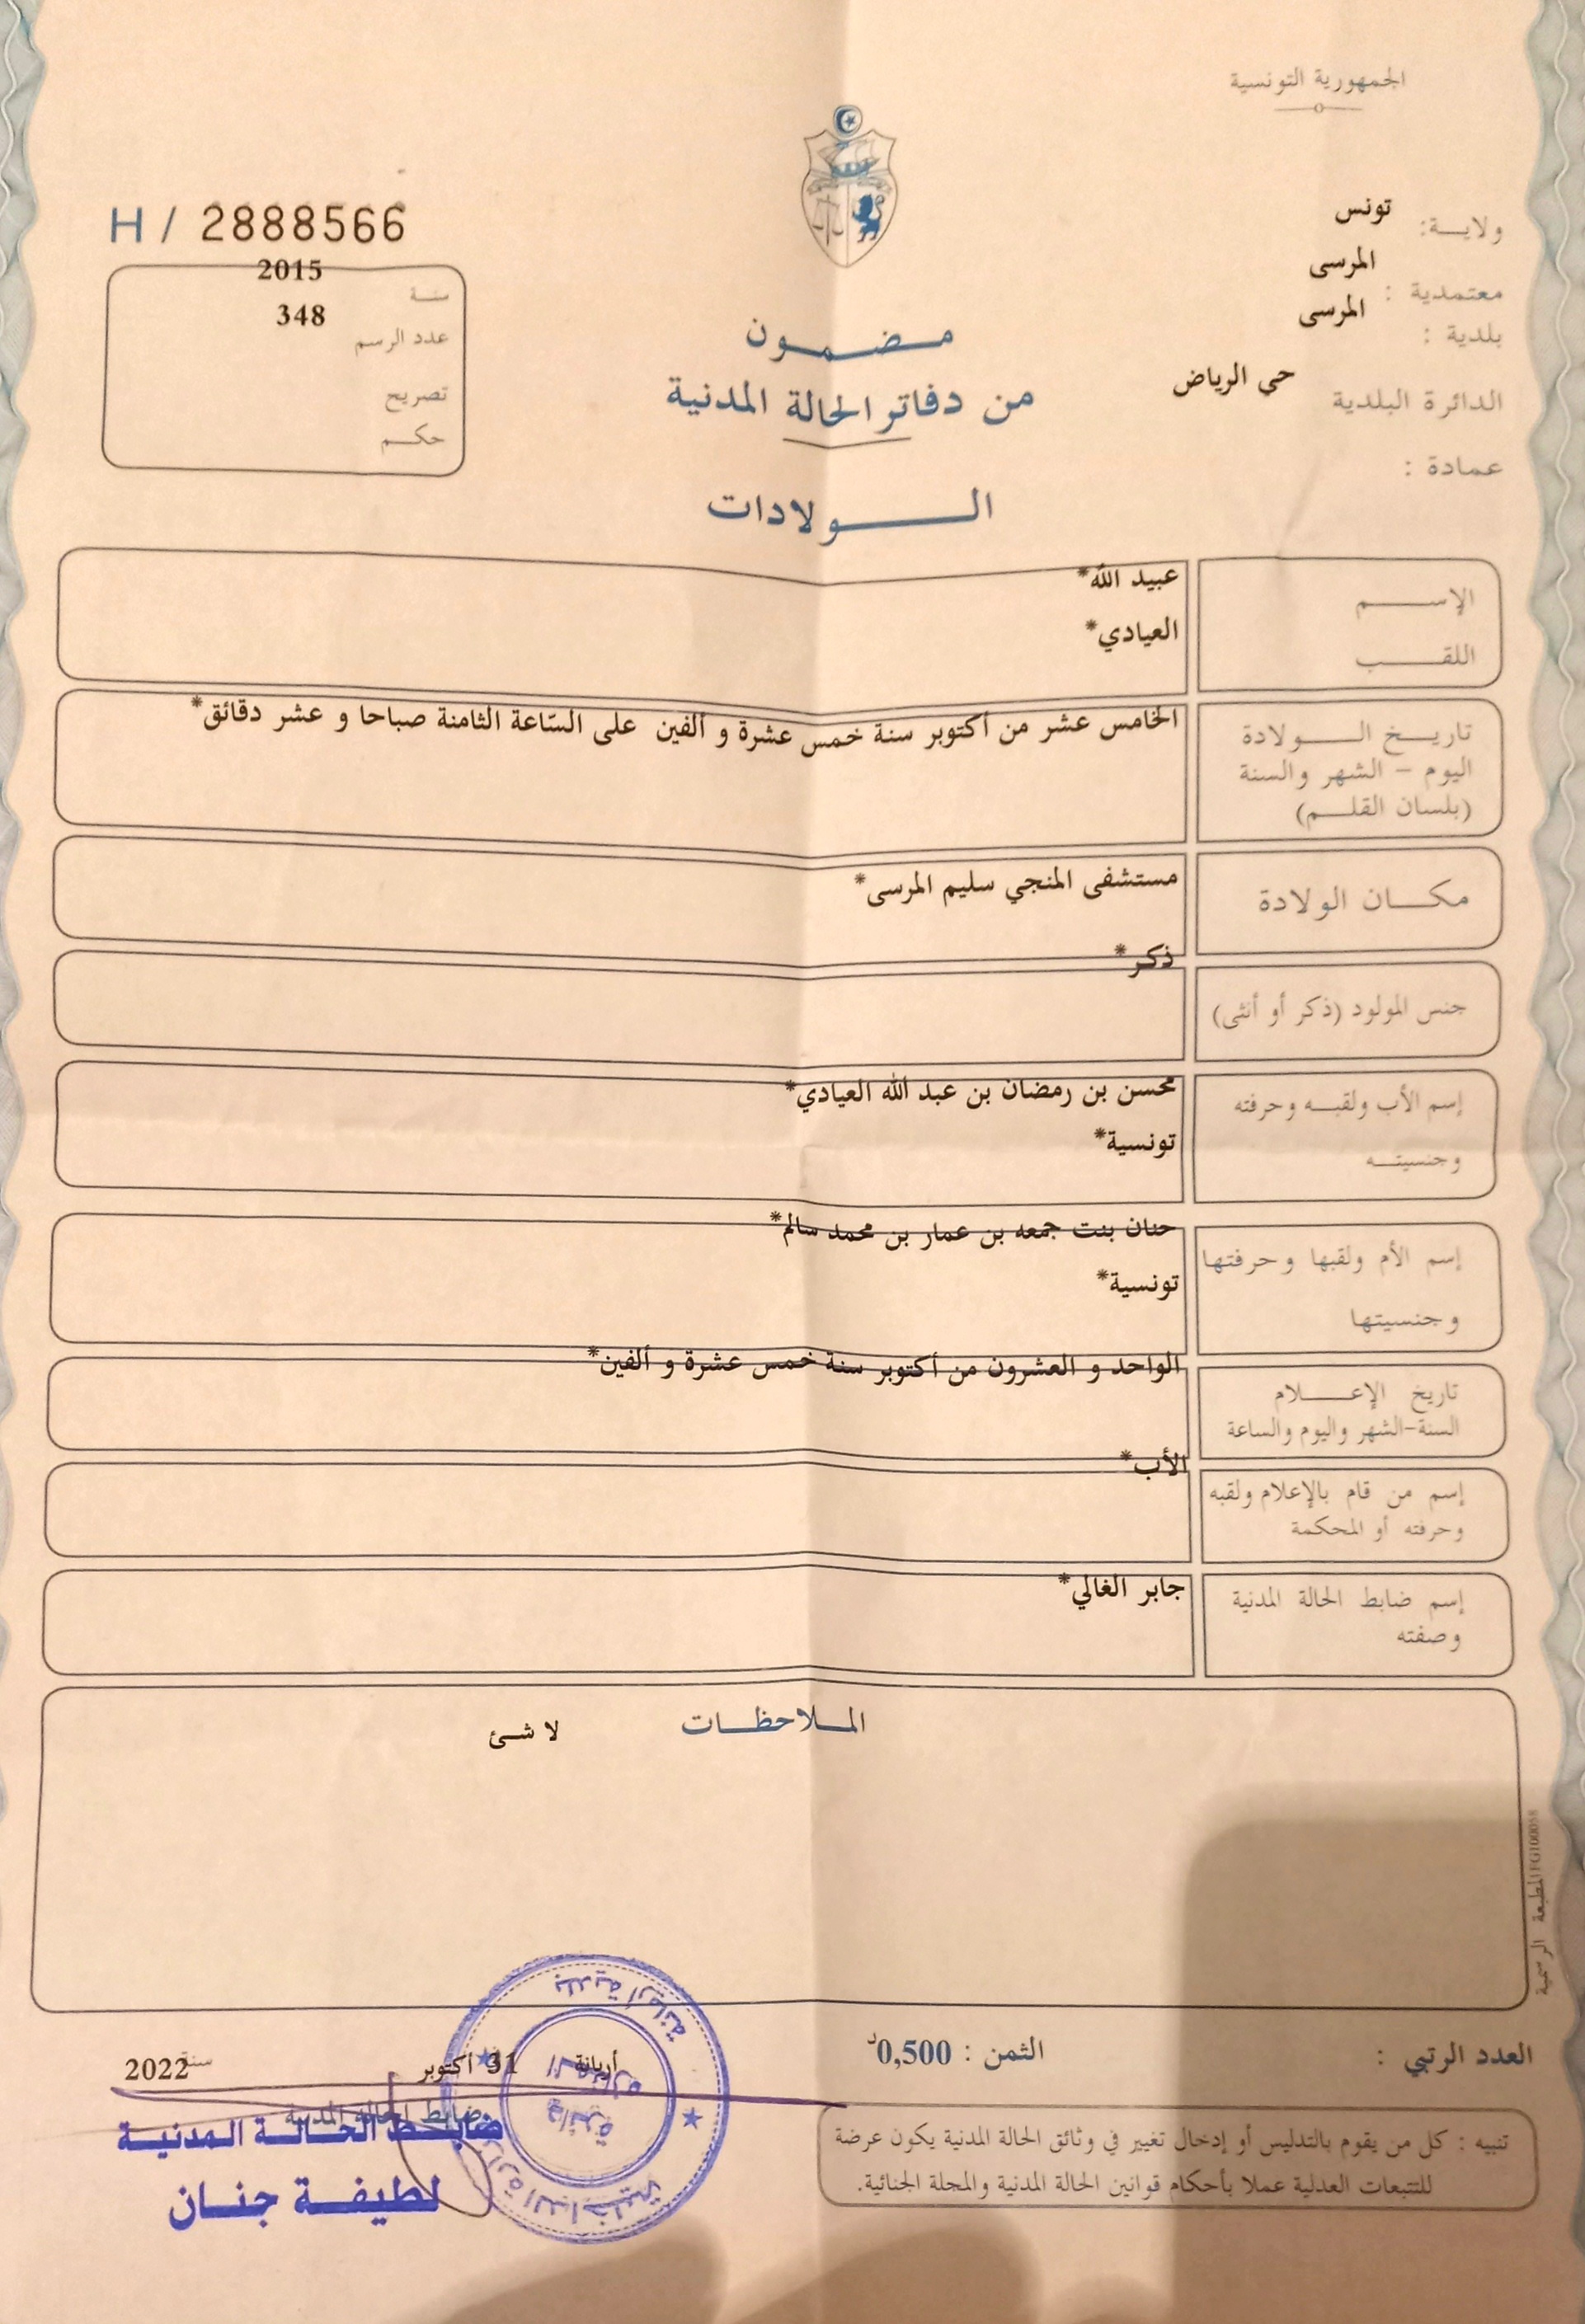 الجمهورية التونسية
ولايــة: تونس
معتمدية : المرسى
بلدية : المرسى
الدائرة البلدية حي الرياض
عمادة :
H / 2888566
سنة 2015
عدد الرسم 348
تصريح
حكم
مضمون
من دفاتر الحالة المدنية
الولادات
الإسم عبيد الله*
اللقب العيادي*
تاريخ الولادة الخامس عشر من أكتوبر سنة خمس عشرة و ألفين على السّاعة الثامنة صباحا و عشر دقائق*
اليوم - الشهر والسنة
(بلسان القلم)
مكان الولادة مستشفى المنجي سليم المرسى*
جنس المولود (ذكر أو أنثى) ذكر*
إسم الأب ولقبه وحرفته محسن بن رمضان بن عبد الله العيادي*
وجنسيته تونسية*
إسم الأم ولقبها وحرفتها حنان بنت جمعه بن عمار بن محمد سالم*
وجنسيتها تونسية*
تاريخ الإعلام الواحد و العشرون من أكتوبر سنة خمس عشرة و ألفين*
السنة-الشهر واليوم والساعة
إسم من قام بالإعلام ولقبه الأب*
وحرفته أو المحكمة
إسم ضابط الحالة المدنية جابر الغالي*
وصفته
الملاحظات لا شئ
المطبعة الرسمية
العدد الرتبي :
الثمن : 0,500د
أريانة 31 أكتوبر سنة 2022
ضابط الحالة المدنية
ضابط الحالة المدنية
لطيفة جنان
بلدية أريانة
تنبيه : كل من يقوم بالتدليس أو إدخال تغيير في وثائق الحالة المدنية يكون عرضة
للتتبعات العدلية عملا بأحكام قوانين الحالة المدنية والمجلة الجنائية.